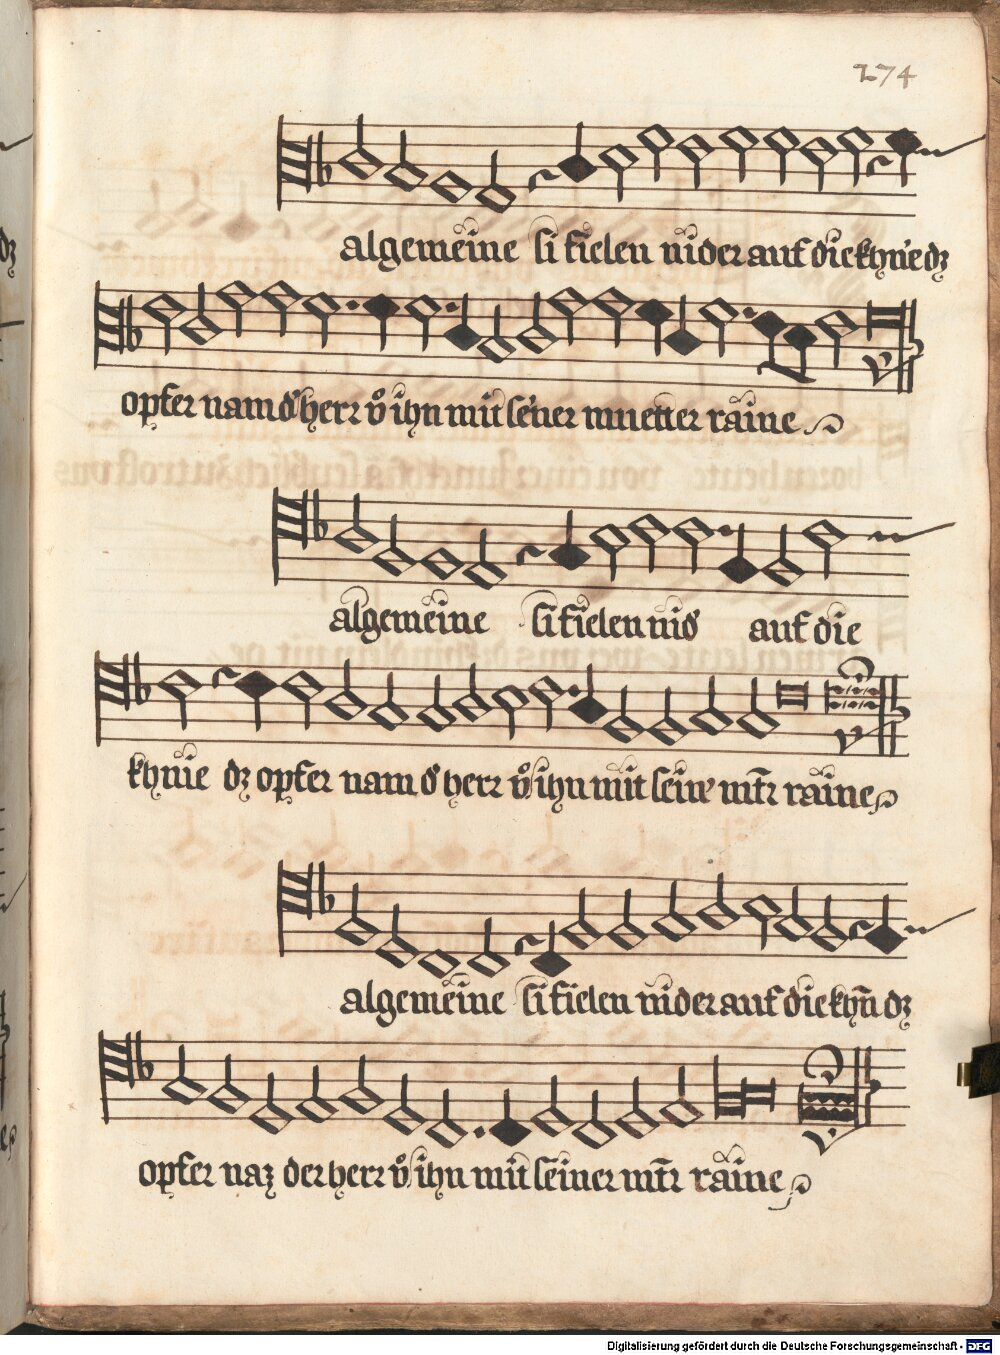 274
algemeine si fielen nider auf die khnie dz
opfer nam d' herr vo ihn mit seiner muetter raine
algemeine si fielen nid' auf die
khnie dz opfer nam d' herr vo ihn mit sein' mtr raine
algemeine si fielen nider auf die khn̄ dz
opfer naz der herr vo ihn mit seiner mtr raine
Digitalisierung gefördert durch die Deutsche Forschungsgemeinschaft - DFG